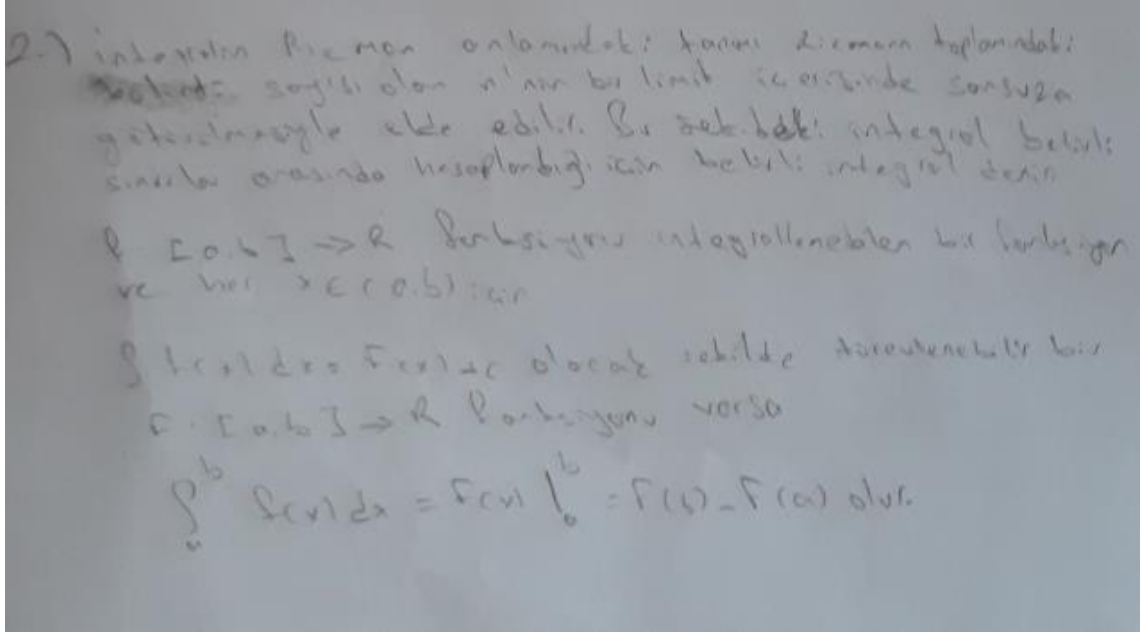 2-) integralin Rieman anlamındaki tanımı Riemann toplamındaki
sayısı olan n'nin bir limit içerisinde sonsuza
götürülmesiyle elde edilir. Bu şekildeki integral belirli
sınırlar arasında hesaplandığı için belirli integral denir
f [a,b] → R fonksiyonu integrallenebilen bir fonksiyon
ve her x ∈ (a,b) için
∫ f(x) dx = F(x)+c olacak şekilde türevlenebilir bir
F: [a,b] → R fonksiyonu varsa
∫ₐᵇ f(x) dx = F(x) |ₐᵇ = F(b) - F(a) olur.